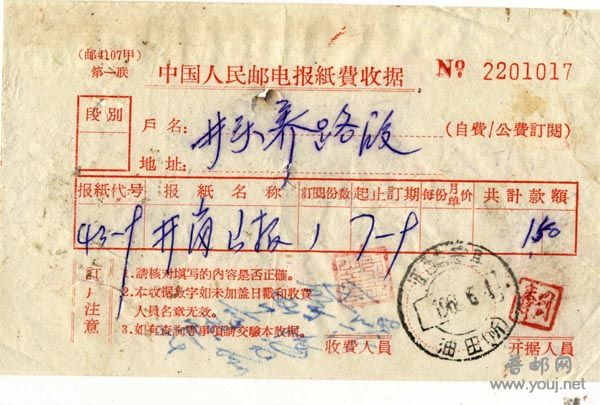 (邮4107甲)
第一联
中国人民邮电报紙費收据
No 2201017
段别
戶名: 井头养路段
(自費/公費訂閱)
地址:
报紙代号 报紙名称 訂閱份数 起止訂期 每份月单价 共計款額
43-9 井岗山报 1 7-9 1.50
訂戶注意
1.請核对填写的內容是否正確。
2.本收据数字如未加盖日戳和收費
人員名章无效。
3.如有查詢等事項請交驗本收据。
收費人員
开据人員
油田(所)
普邮网
www.youj.net